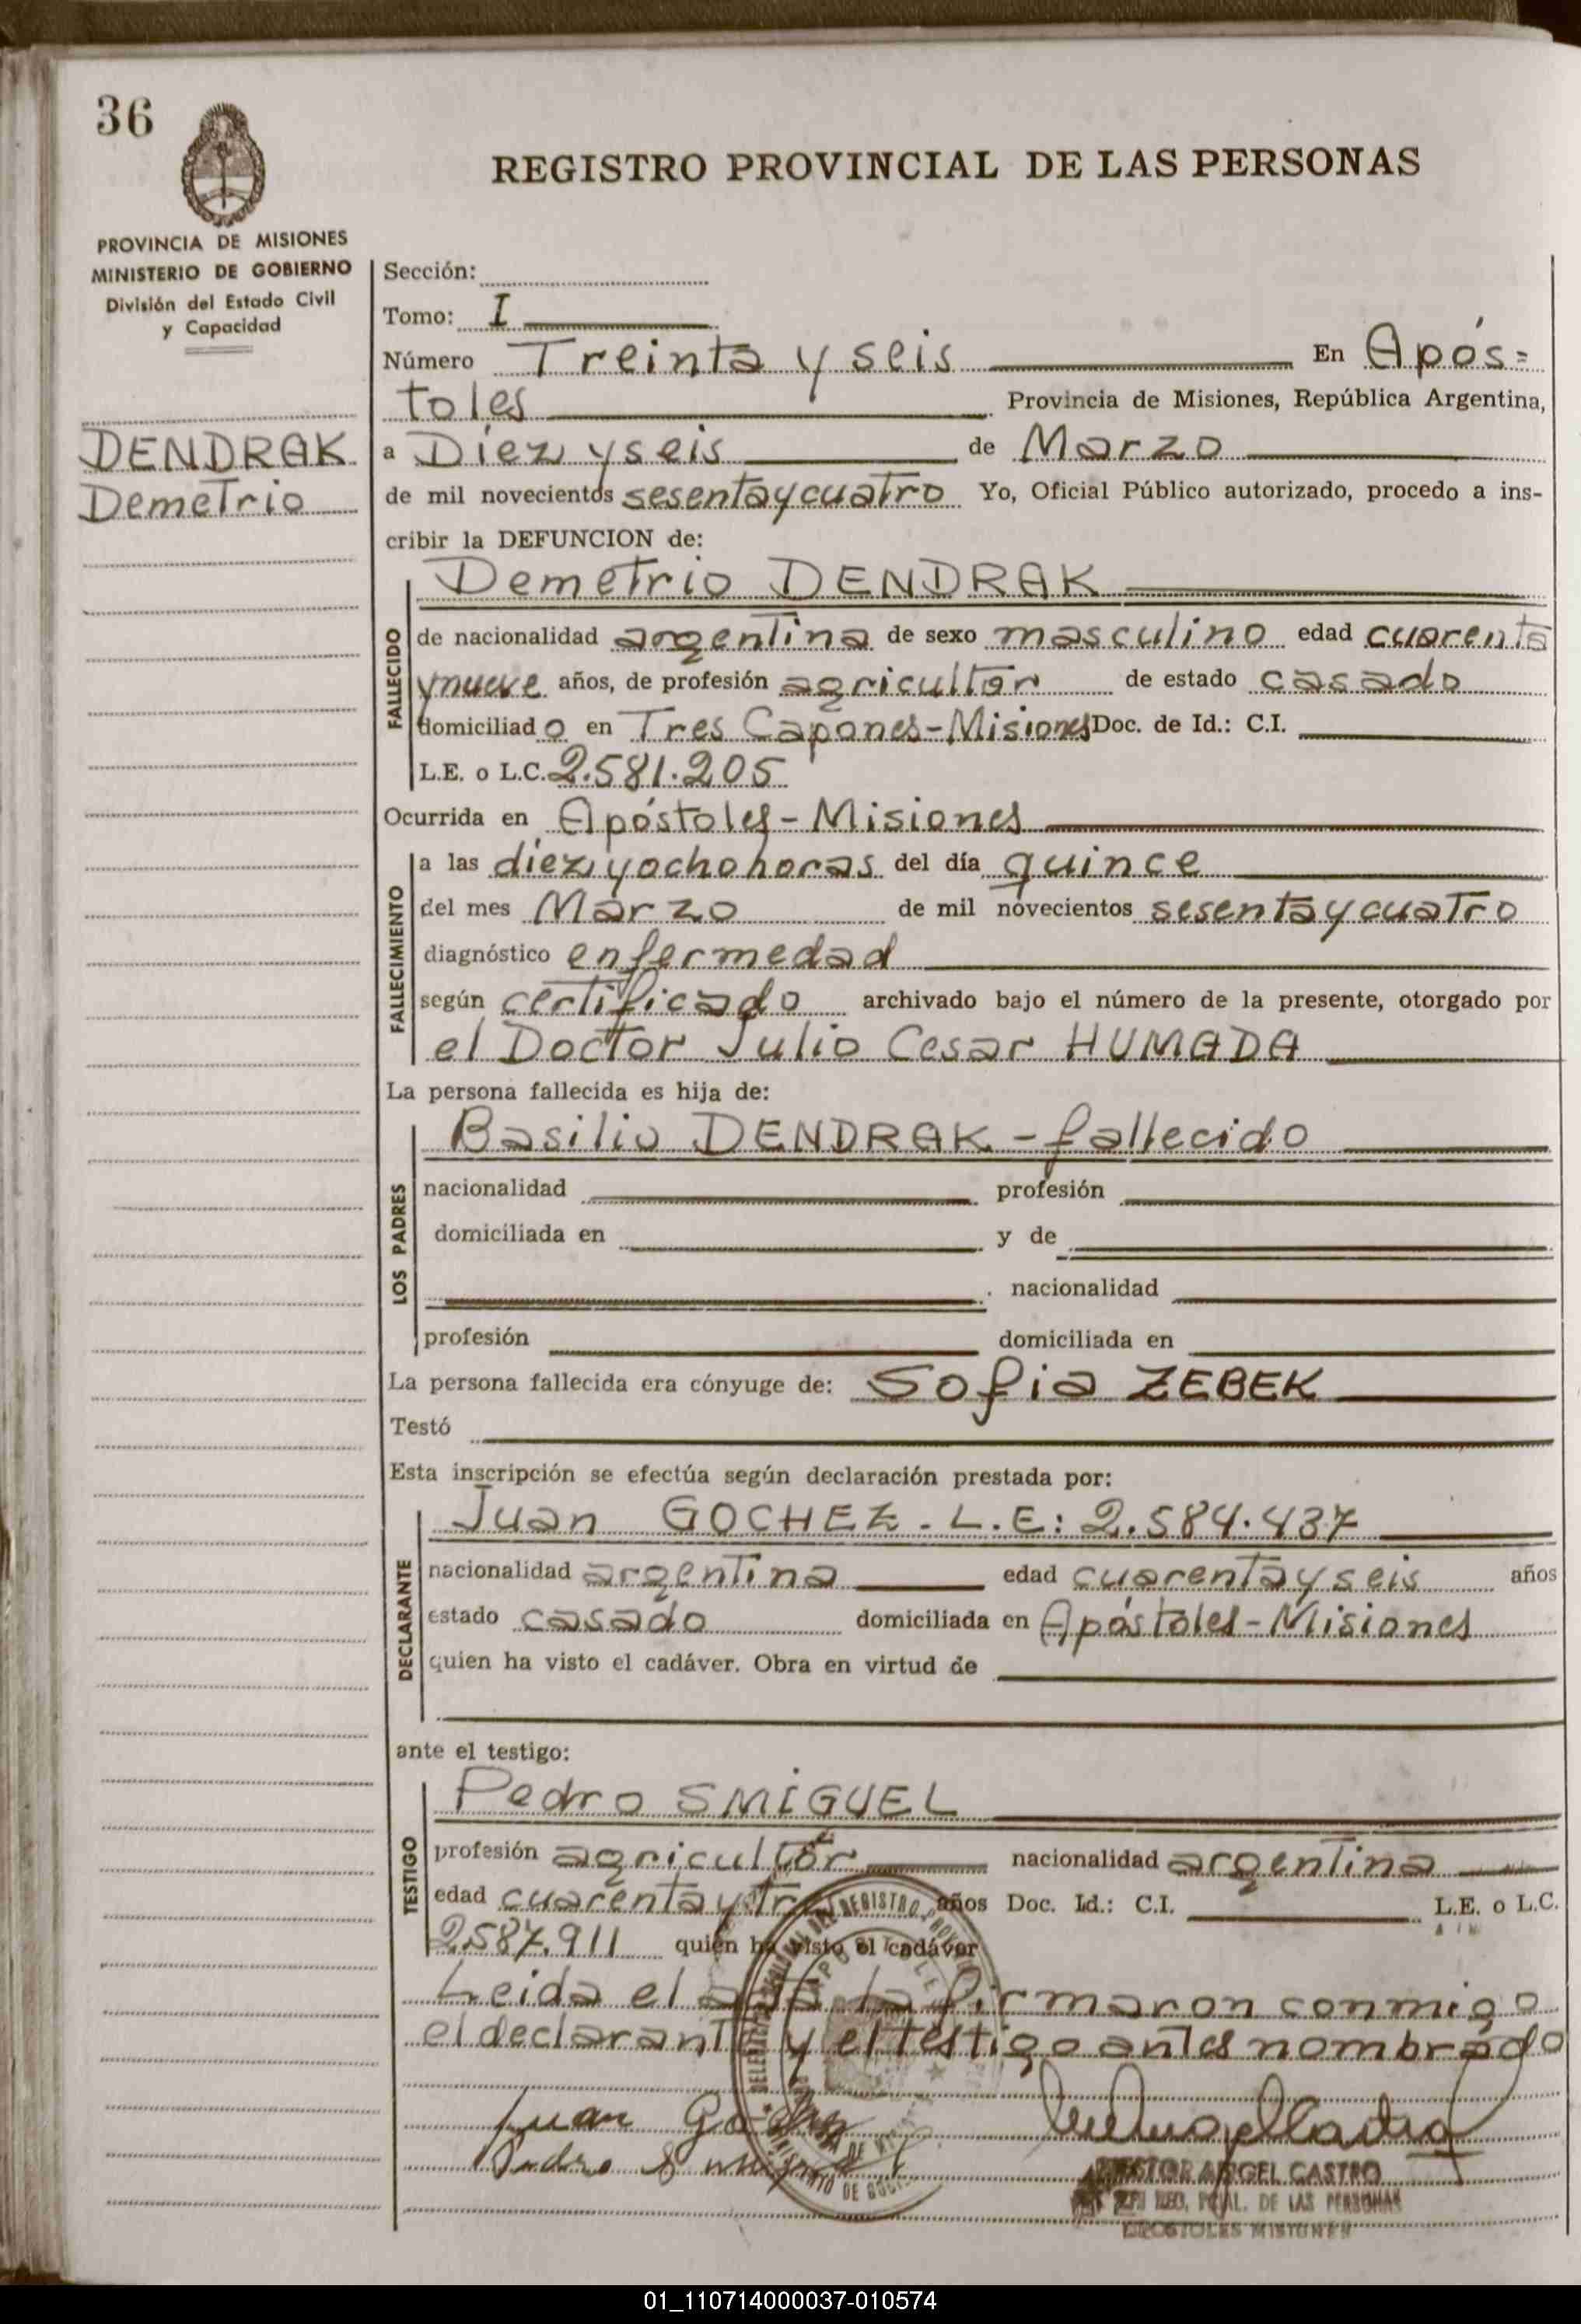 36
REGISTRO PROVINCIAL DE LAS PERSONAS
PROVINCIA DE MISIONES
MINISTERIO DE GOBIERNO
División del Estado Civil
y Capacidad
DENDRAK
Demetrio
Sección:
Tomo: I
Número Treinta y seis En Após=
toles Provincia de Misiones, República Argentina,
a Diez y seis de Marzo
de mil novecientos sesenta y cuatro Yo, Oficial Público autorizado, procedo a ins-
cribir la DEFUNCION de:
Demetrio DENDRAK
FALLECIDO
de nacionalidad argentina de sexo masculino edad cuarenta
y nueve años, de profesión agricultor de estado casado
domiciliado en Tres Capones-Misiones Doc. de Id.: C.I.
L.E. o L.C. 2.581.205
Ocurrida en Apóstoles-Misiones
FALLECIMIENTO
a las diez y ocho horas del día quince
del mes Marzo de mil novecientos sesenta y cuatro
diagnóstico enfermedad
según certificado archivado bajo el número de la presente, otorgado por
el Doctor Julio Cesar HUMADA
La persona fallecida es hija de:
LOS PADRES
Basilio DENDRAK - fallecido
nacionalidad profesión
domiciliada en y de
nacionalidad
profesión domiciliada en
La persona fallecida era cónyuge de: Sofia ZEBEK
Testó
Esta inscripción se efectúa según declaración prestada por:
DECLARANTE
Juan GOCHEZ. L.E: 2.584.437
nacionalidad argentina edad cuarenta y seis años
estado casado domiciliada en Apóstoles-Misiones
quien ha visto el cadáver. Obra en virtud de
ante el testigo:
TESTIGO
Pedro SMIGUEL
profesión agricultor nacionalidad argentina
edad cuarenta y años Doc. Id.: C.I. L.E. o L.C.
2.587.911 quien ha visto el cadáver
Leida el acta la firmaron conmigo
el declarante y el testigo antes nombrado
Juan
Pedro
ANGEL CASTRO
DE LAS PERSONAS
APOSTOLES MISIONES
01_110714000037-010574